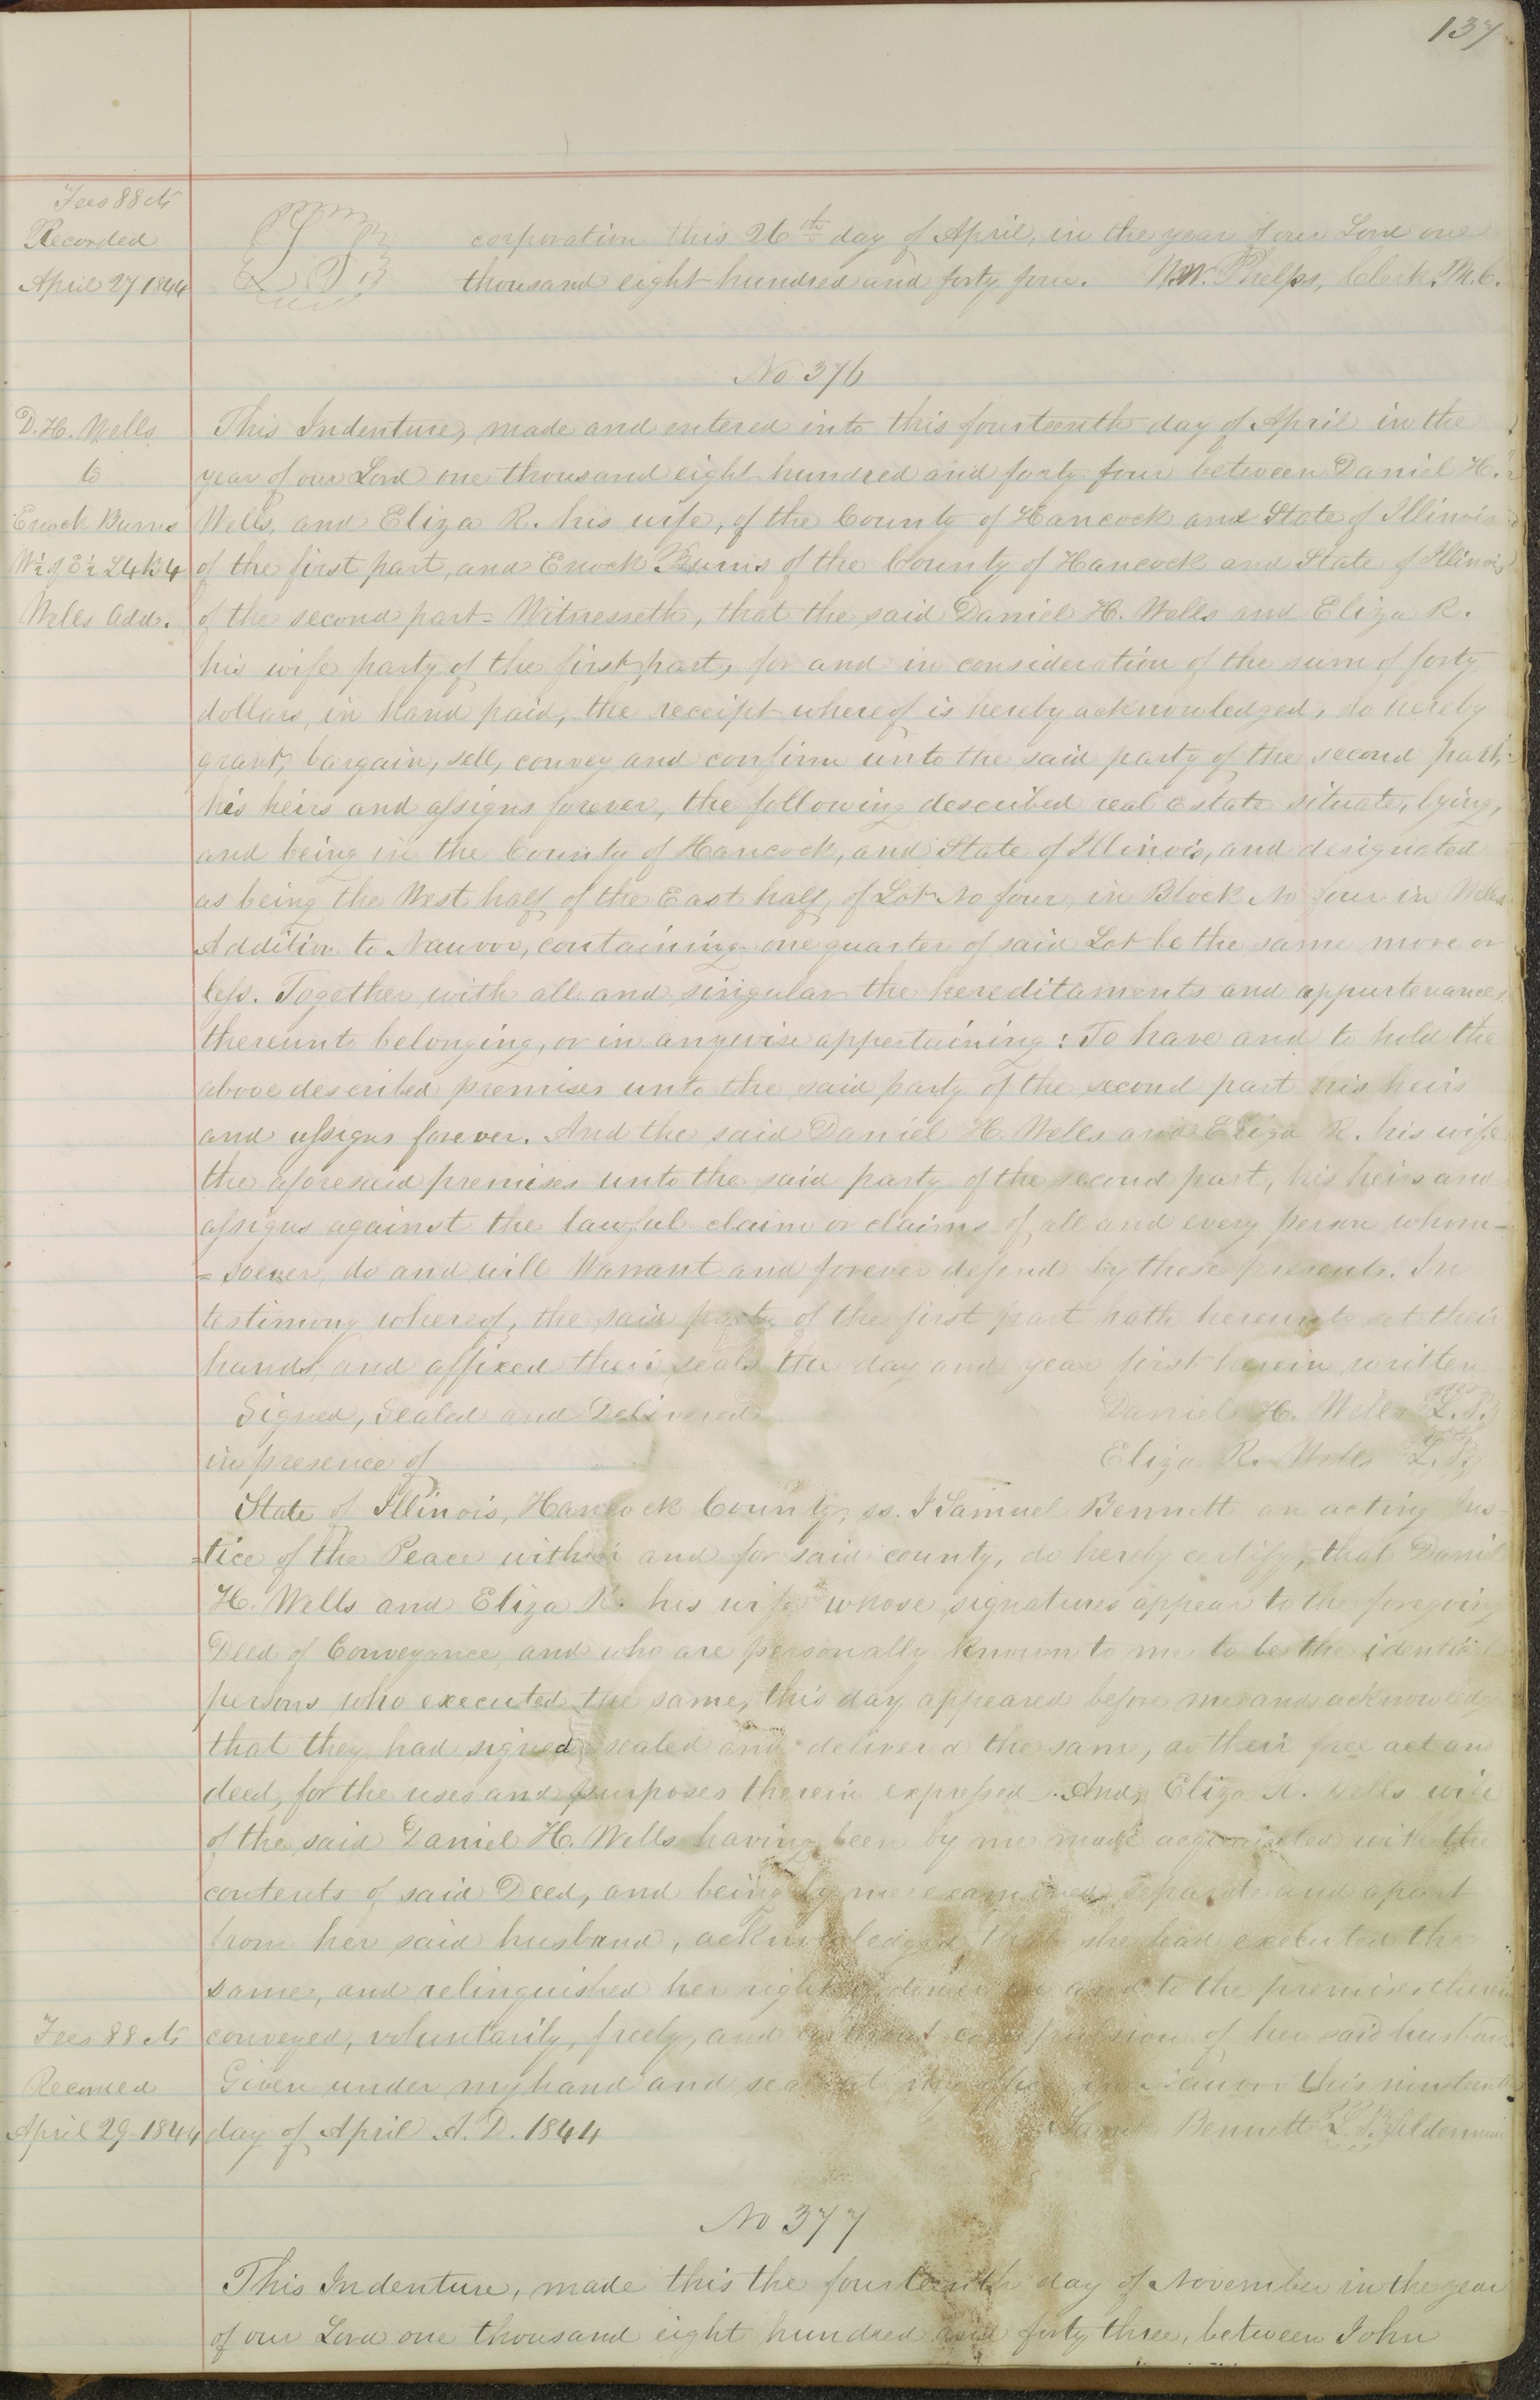 137
Fees 88 cts
Recorded
April 27 1844
L S
corporation this 26th day of April, in the year of our Lord one
thousand eight hundred and forty four. W.W. Phelps, Clerk. M.C.
No 376
D. H. Wells
to
Enoch Burns
W½ of E½ L4 B4
Wells Add.
This Indenture, made and entered into this fourteenth day of April in the
year of our Lord one thousand eight hundred and forty four between Daniel H.
Wells, and Eliza R. his wife, of the County of Hancock and State of Illinois
of the first part, and Enock Burns of the County of Hancock and State of Illinois
of the second part = Witnesseth, that the said Daniel H. Wells and Eliza R.
his wife party of the first part, for and in consideration of the sum of forty
dollars, in hand paid, the receipt whereof is hereby acknowledged, do hereby
grant, bargain, sell, convey and confirm unto the said party of the second part,
his heirs and assigns forever, the following described real estate situate, lying,
and being in the County of Hancock, and State of Illinois, and designated
as being the West half of the East half, of Lot No four, in Block No four in Wells
Addition to Nauvoo, containing one quarter of said Lot be the same more or
less. Together with all and singular the hereditaments and appurtenances
thereunto belonging, or in anywise appertaining: To have and to hold the
above described premises unto the said party of the second part his heirs
and assigns forever. And the said Daniel H. Wells and Eliza R. his wife
the aforesaid premises unto the said party of the second part, his heirs and
assigns against the lawful claim or claims of all and every person whom-
=soever, do and will Warrant and forever defend by these presents. In
testimony whereof, the said party of the first part hath hereunto set their
hands, and affixed their seals the day and year first herein written
Signed, Sealed and Delivered Daniel H. Wells L.S.
in presence of Eliza R. Wells L.S.
State of Illinois, Hancock County, ss. I Samuel Bennett an acting Jus-
=tice of the Peace within and for said county, do hereby certify, that Daniel
H. Wells and Eliza R. his wife whose signatures appear to the foregoing
Deed of Conveyance, and who are personally known to me to be the identical
persons who executed the same, this day appeared before me and acknowledge
that they had signed, sealed and delivered the same, as their free act and
deed, for the uses and purposes therein expressed. And, Eliza R. Wells wife
of the said Daniel H. Wells having been by me made acquainted with the
contents of said Deed, and being by me examined separate and apart
from her said husband, acknowledged that she had executed the
same, and relinquished her right of dower in and to the premises therein
conveyed, voluntarily, freely, and without compulsion of her said husband
Given under my hand and seal at my office in Nauvoo this nineteenth
day of April A.D. 1844 Samuel Bennett L.S. Alderman
Fees 88 cts
Recorded
April 29 1844
No 377
This Indenture, made this the fourteenth day of November in the year
of our Lord one thousand eight hundred and forty three, between John